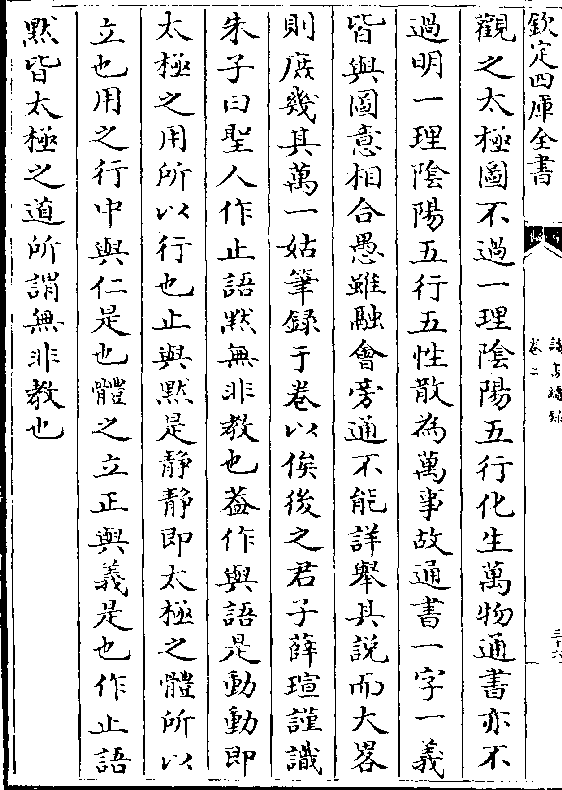 欽定四庫全書
讀書續錄
卷二
三十六
觀之太極圖不過一理陰陽五行化生萬物通書亦不
過明一理陰陽五行五性散為萬事故通書一字一義
皆與圖意相合愚雖融會旁通不能詳舉其說而大畧
則庶幾其萬一姑筆録于巻以俟後之君子薛瑄謹識
朱子曰聖人作止語黙無非教也葢作與語是動動即
太極之用所以行也止與黙是静静即太極之體所以
立也用之行中與仁是也體之立正與義是也作止語
黙皆太極之道所謂無非教也